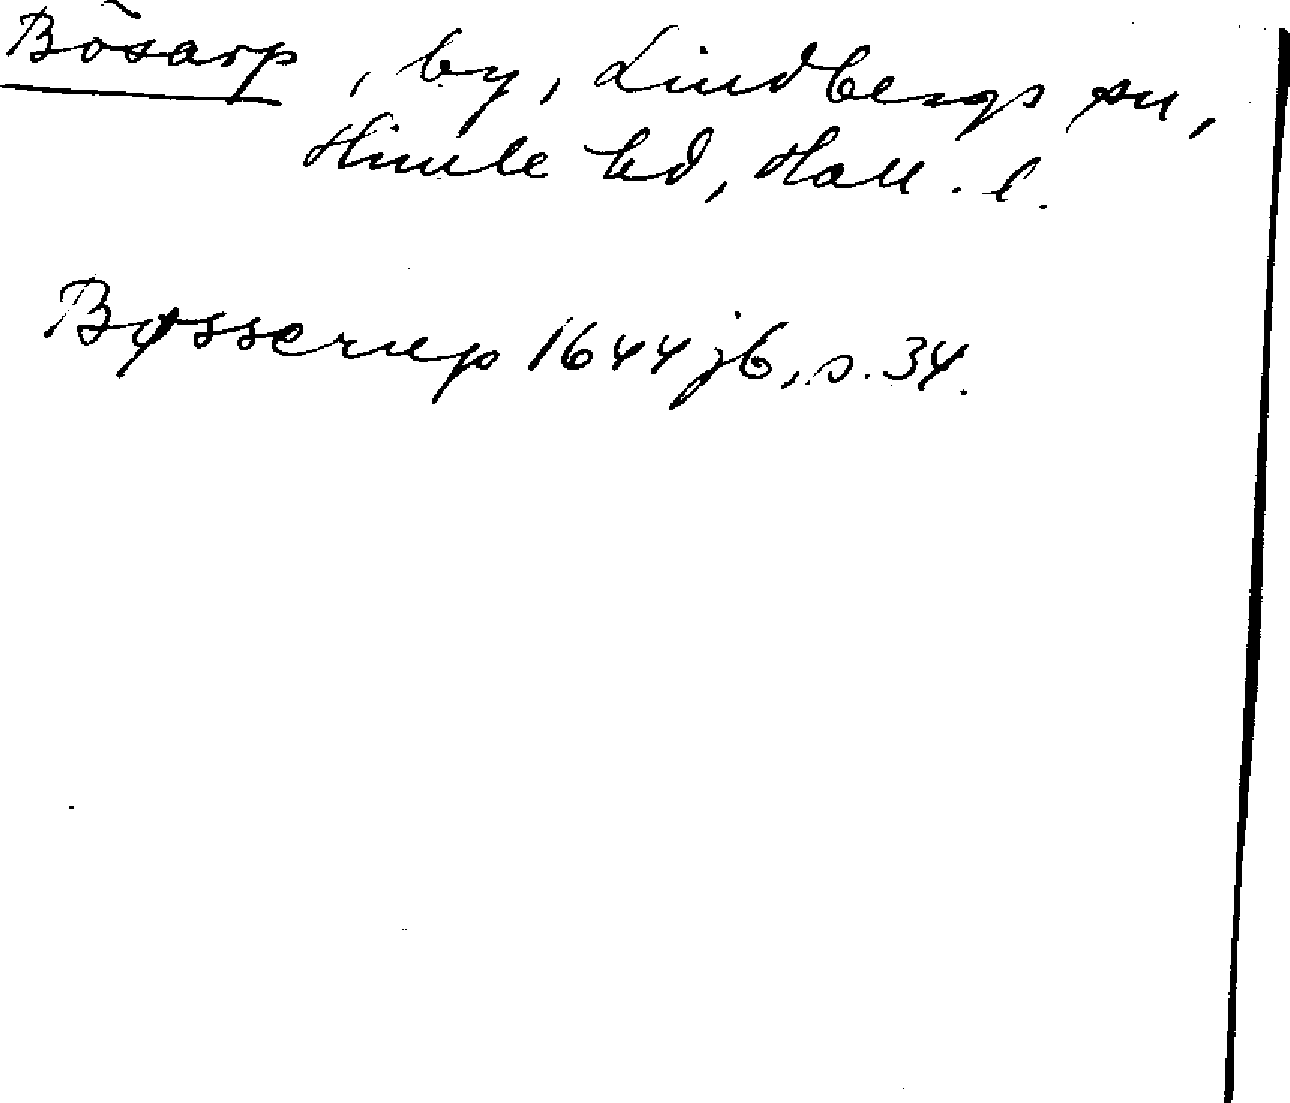 Bösarp, by, Lindbergs sn,
Himle hd, Hall. l.
Bøsserup 1644 jb, s. 34.